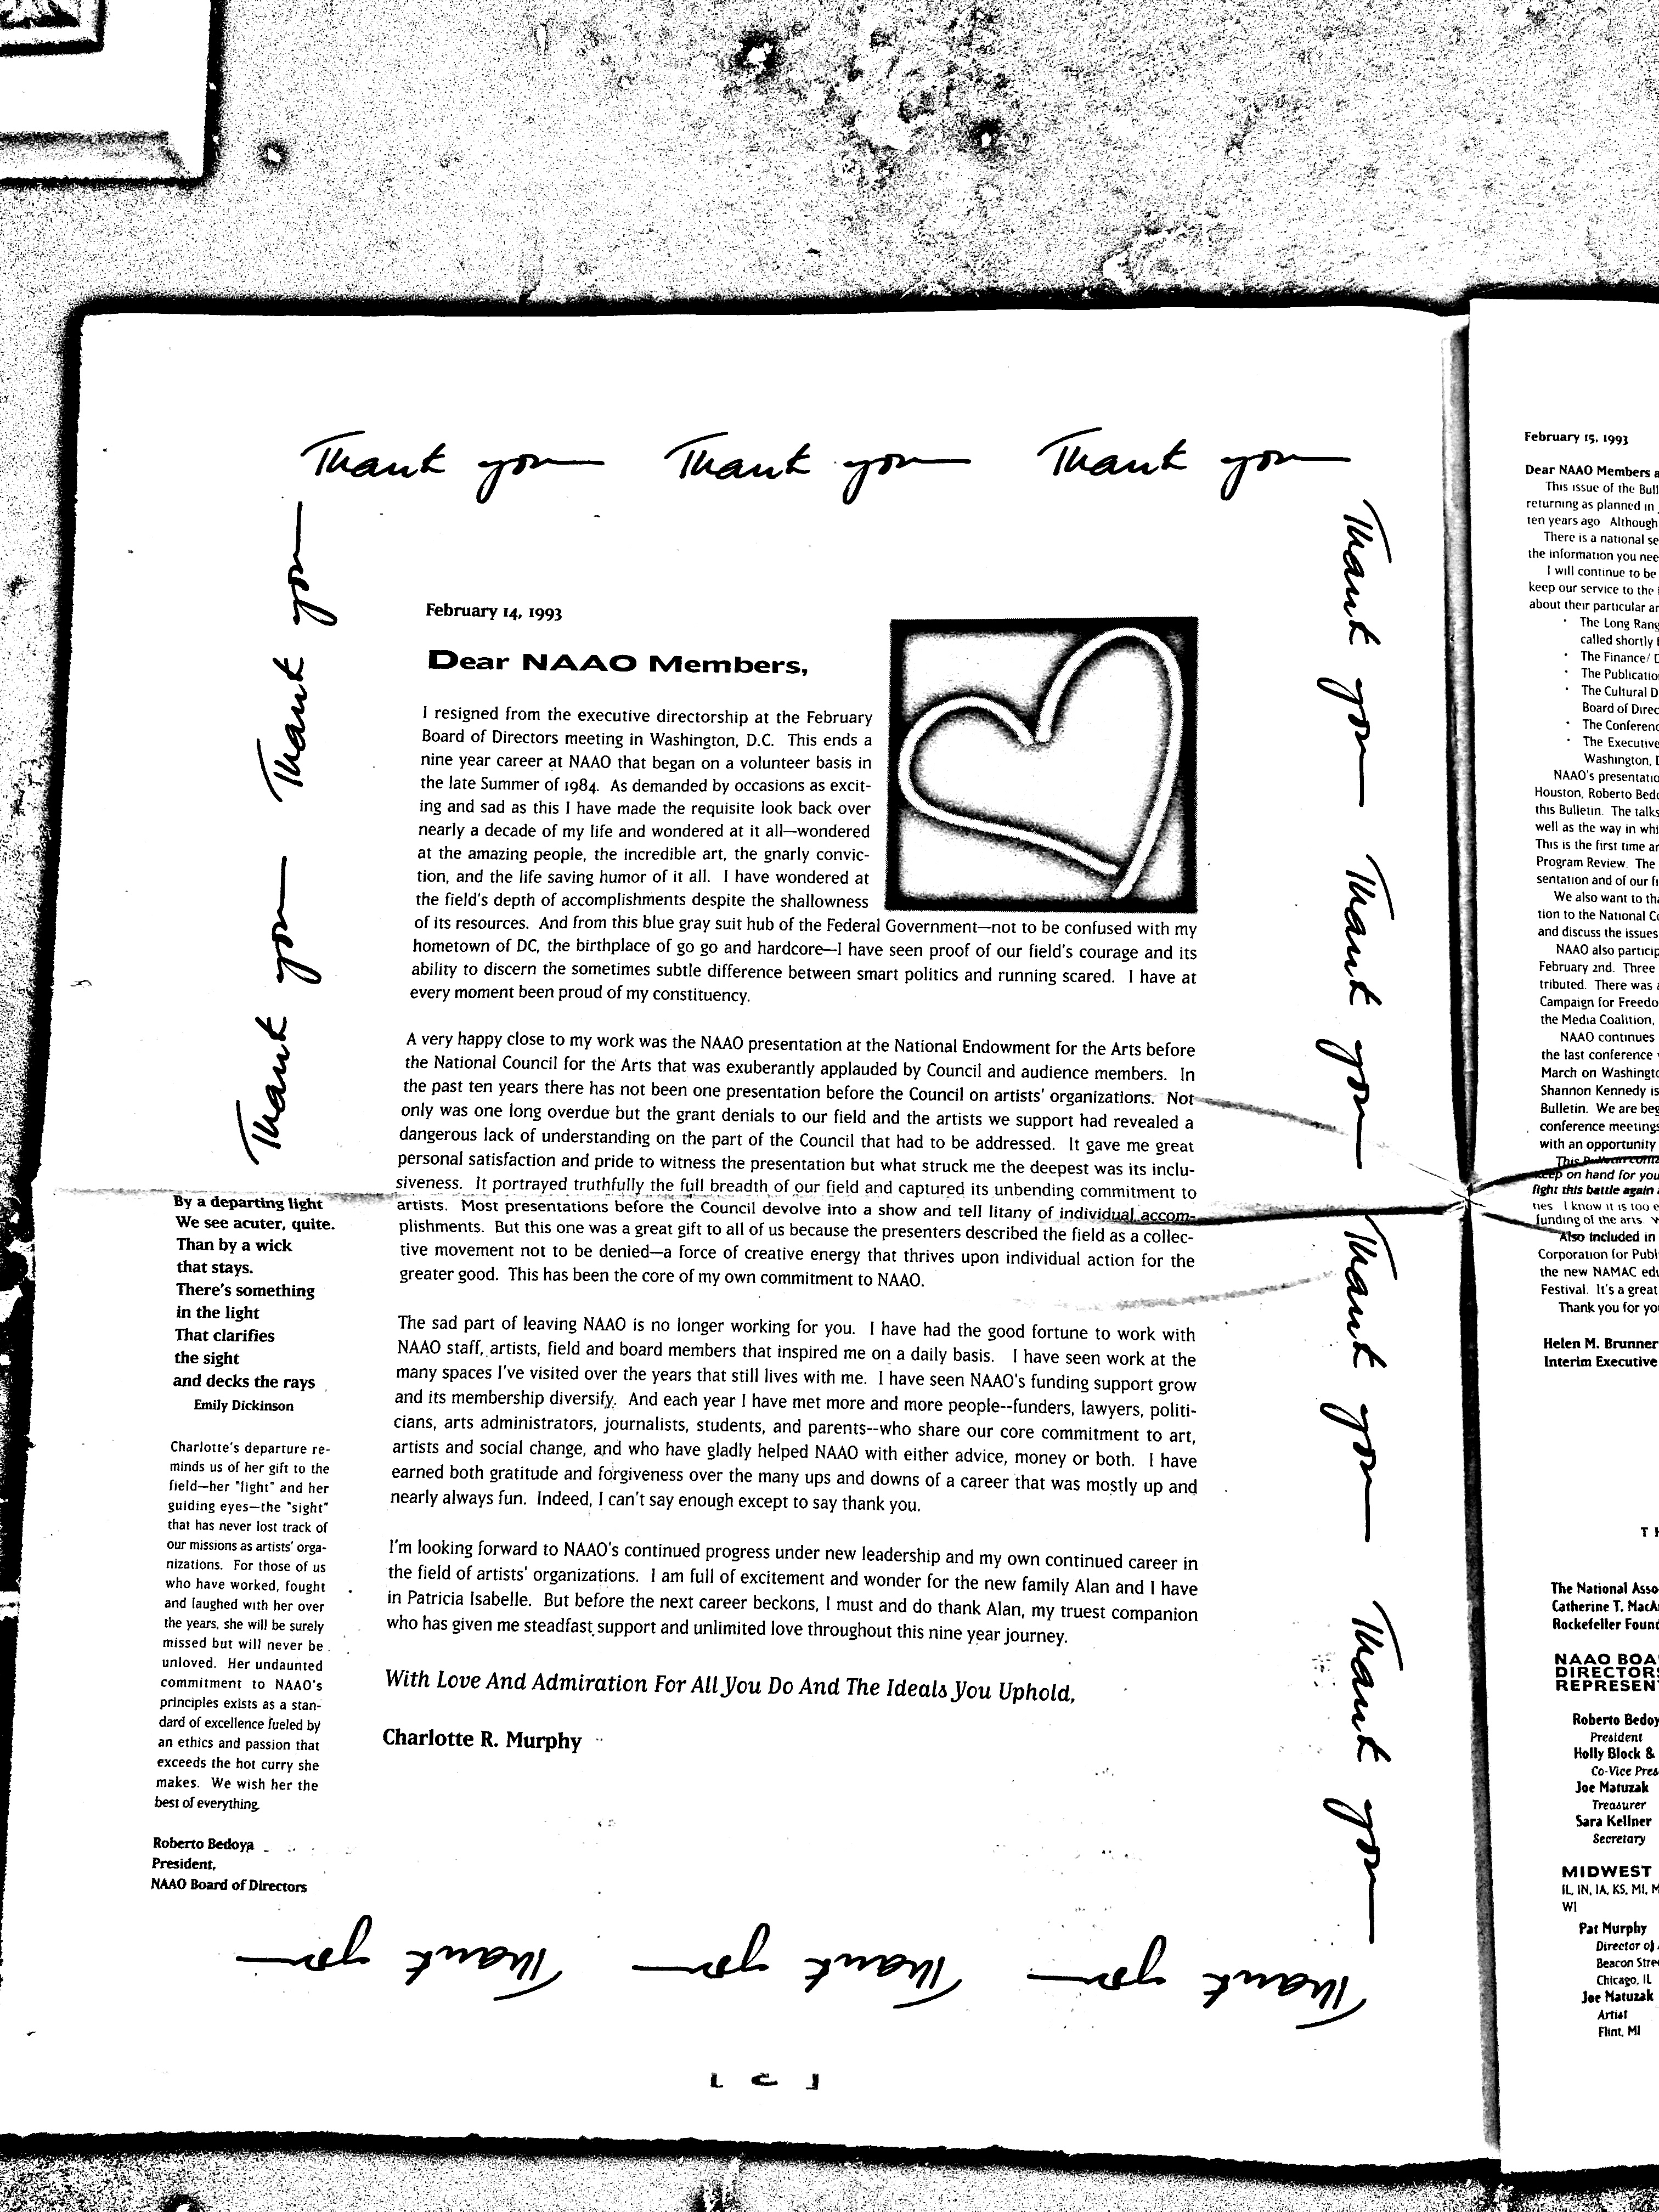 Thank you Thank you Thank you
Thank you Thank you
Thank you Thank you Thank you Thank you
February 14, 1993
Dear NAAO Members,
I resigned from the executive directorship at the February
Board of Directors meeting in Washington, D.C. This ends a
nine year career at NAAO that began on a volunteer basis in
the late Summer of 1984. As demanded by occasions as excit-
ing and sad as this I have made the requisite look back over
nearly a decade of my life and wondered at it all—wondered
at the amazing people, the incredible art, the gnarly convic-
tion, and the life saving humor of it all. I have wondered at
the field's depth of accomplishments despite the shallowness
of its resources. And from this blue gray suit hub of the Federal Government—not to be confused with my
hometown of DC, the birthplace of go go and hardcore—I have seen proof of our field's courage and its
ability to discern the sometimes subtle difference between smart politics and running scared. I have at
every moment been proud of my constituency.
A very happy close to my work was the NAAO presentation at the National Endowment for the Arts before
the National Council for the Arts that was exuberantly applauded by Council and audience members. In
the past ten years there has not been one presentation before the Council on artists' organizations. Not
only was one long overdue but the grant denials to our field and the artists we support had revealed a
dangerous lack of understanding on the part of the Council that had to be addressed. It gave me great
personal satisfaction and pride to witness the presentation but what struck me the deepest was its inclu-
siveness. It portrayed truthfully the full breadth of our field and captured its unbending commitment to
artists. Most presentations before the Council devolve into a show and tell litany of individual accom-
plishments. But this one was a great gift to all of us because the presenters described the field as a collec-
tive movement not to be denied—a force of creative energy that thrives upon individual action for the
greater good. This has been the core of my own commitment to NAAO.
The sad part of leaving NAAO is no longer working for you. I have had the good fortune to work with
NAAO staff, artists, field and board members that inspired me on a daily basis. I have seen work at the
many spaces I've visited over the years that still lives with me. I have seen NAAO's funding support grow
and its membership diversify. And each year I have met more and more people--funders, lawyers, politi-
cians, arts administrators, journalists, students, and parents--who share our core commitment to art,
artists and social change, and who have gladly helped NAAO with either advice, money or both. I have
earned both gratitude and forgiveness over the many ups and downs of a career that was mostly up and
nearly always fun. Indeed, I can't say enough except to say thank you.
I'm looking forward to NAAO's continued progress under new leadership and my own continued career in
the field of artists' organizations. I am full of excitement and wonder for the new family Alan and I have
in Patricia Isabelle. But before the next career beckons, I must and do thank Alan, my truest companion
who has given me steadfast support and unlimited love throughout this nine year journey.
With Love And Admiration For All You Do And The Ideals You Uphold,
Charlotte R. Murphy
By a departing light
We see acuter, quite.
Than by a wick
that stays.
There's something
in the light
That clarifies
the sight
and decks the rays
Emily Dickinson
Charlotte's departure re-
minds us of her gift to the
field—her "light" and her
guiding eyes—the "sight"
that has never lost track of
our missions as artists' orga-
nizations. For those of us
who have worked, fought
and laughed with her over
the years, she will be surely
missed but will never be
unloved. Her undaunted
commitment to NAAO's
principles exists as a stan-
dard of excellence fueled by
an ethics and passion that
exceeds the hot curry she
makes. We wish her the
best of everything.
Roberto Bedoya
President,
NAAO Board of Directors
Thank you Thank you Thank you
February 15, 1993
Dear NAAO Members
This issue of the
returning as planned in
ten years ago Although
There is a national
the information you
I will continue to be
keep our service to the
about their particular
• The Long
called shortly
• The Finance/
• The
• The Cultural
Board of
• The
• The Executive
Washington,
NAAO's
Houston, Roberto
this Bulletin. The talks
well as the way in
This is the first time
Program Review. The
sentation and of our
We also want to
tion to the National
and discuss the issues
NAAO also
February 2nd. Three
tributed. There was
Campaign for
the Media Coalition,
NAAO continues
the last conference
March on
Shannon Kennedy is
Bulletin. We are
conference
with an opportunity
This Bulletin
keep on hand for
fight this battle again
ties I know it is too
funding of the arts.
Also included in
Corporation for
the new NAMAC
Festival. It's a great
Thank you for
Helen M. Brunner
Interim Executive
The National
Catherine T.
Rockefeller
NAAO
Roberto
President
Holly Block &
Joe Matuzak
Treasurer
Sara Kellner
Secretary
MIDWEST
IL, IN, IA, KS, MI,
WI
Pat Murphy
Director of
Beacon
Chicago, IL
Joe Matuzak
Artist
Flint, MI